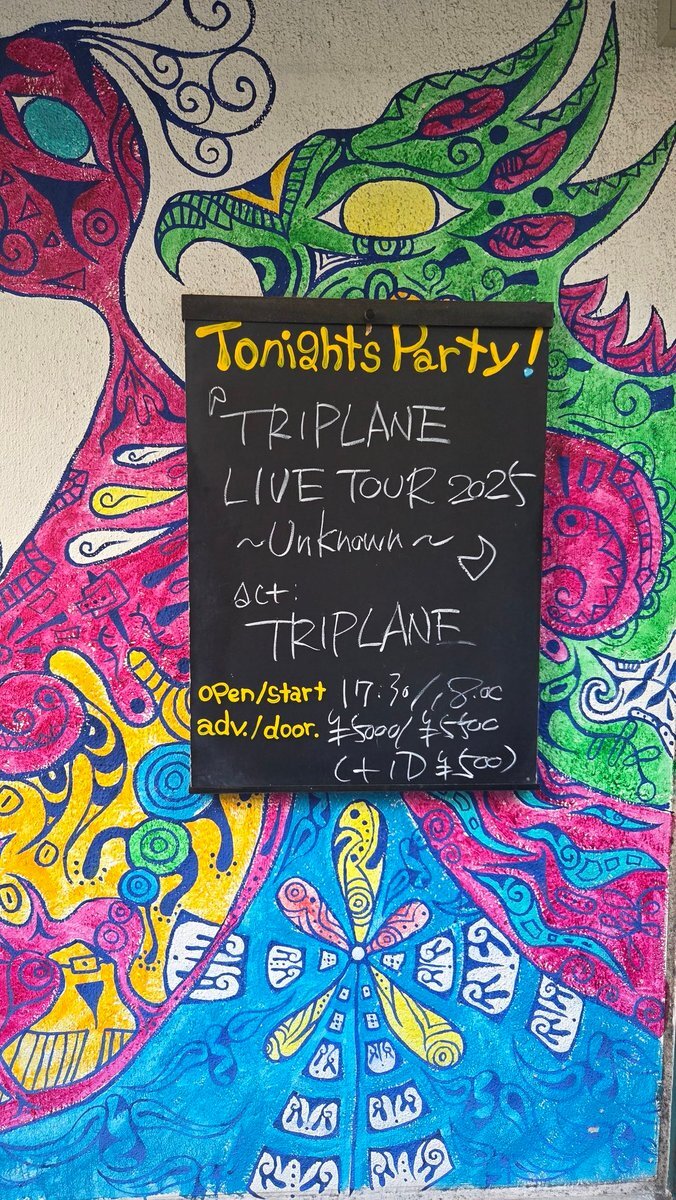 Tonight's Party!
『TRIPLANE
LIVE TOUR 2025
~Unknown~』
act:
TRIPLANE
open/start 17:30/18:00
adv./door. ¥5000/¥5500
(+1D ¥500)